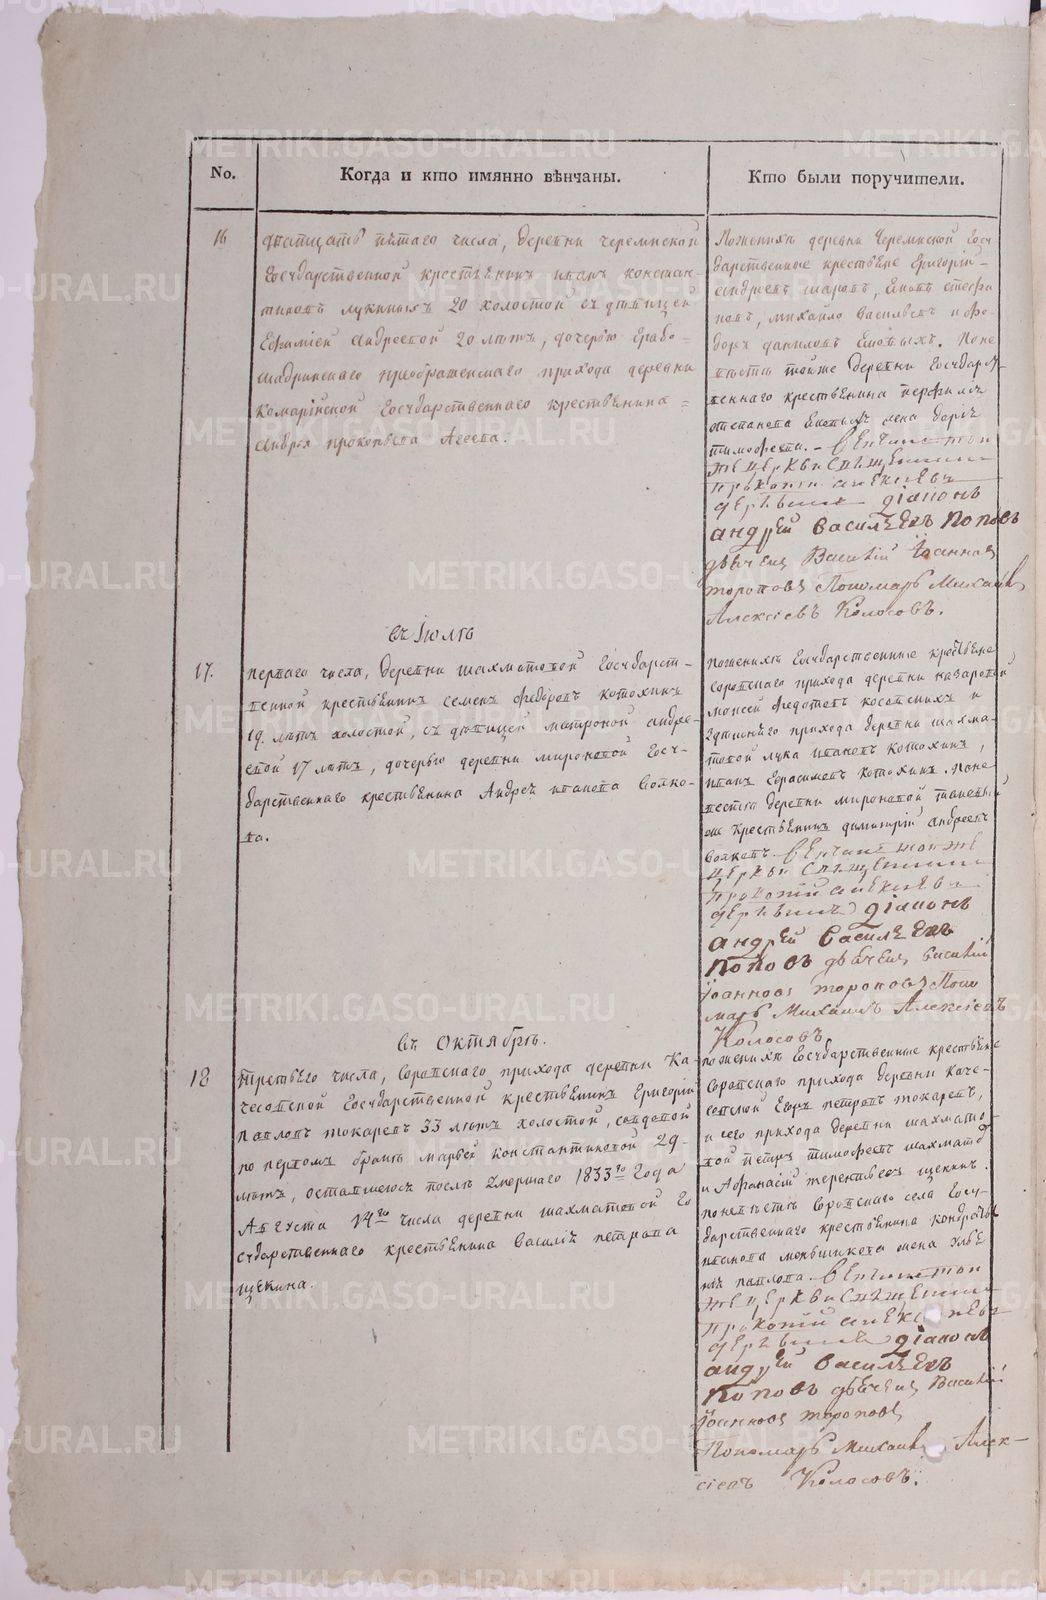 No.
Когда и кто имянно вѣнчаны.
Кто были поручители.
16
дватцать пѣтаго числа, деревни черемиской
Государственной крестьянинъ иванъ констан-
тиновъ лукиныхъ 20 холостой съ дѣвицей
Ефимией андреевой 20 лѣтъ, дочерью Грабо-
шадринскаго преображенскаго прихода деревни
комарійской Государственнаго крестьянина
андрея прокопьева Агеева.
Поженихѣ деревни Черемиской Госу
дарственные крестьяне Григорій
андреевъ шаровъ, стефа
новъ, михайло васильевъ и Фе
доръ даниловъ Поне
вѣстѣ тойже деревни Государст
веннаго крестьянина перфилья
степанова жена дарья
тимофеева. - венчалъ тои
же церкви священникъ
прокопи алексиевъ
діаконъ
андрей Василѣевъ Поповъ
дьячекъ Василій Іоанновъ
тороповъ Пономарь Михаилъ
Алексіевъ Колосовъ.
въ Іюлѣ
17.
перваго числа, деревни шахматовой Государст-
венной крестьянинъ семенъ Федоровъ котюхинъ
19. лѣтъ холостой, съ дѣвицей матроной андре-
евой 17 лѣтъ, дочерью деревни мироновой Госу-
дарственнаго крестьянина Андрея иванова волко-
ва.
поженихѣ Государственные крестьяне
соровскаго прихода деревни назаровой
моисей Федотовъ косвинихъ и
здешнего прихода деревни шахма-
товой лука ивановъ котюхинъ,
иванъ Герасимовъ котюхинъ. Поне
вестѣ деревни мироновой таковый
же крестьянинъ димитрій андреевъ
волковъ. венчалъ тои же
церкви священникъ
прокопій алексиевъ
діаконъ
андрей Василѣевъ
Поповъ дьячекъ василій
Іоанновъ тороповъ Поно
марь Михаилъ Алексіевъ
Колосовъ
въ Октябрѣ.
18
третьего числа, Соровскаго прихода деревни Ка-
чесовской Государственной крестьянинъ Григорій
павловъ токаревъ 33 лѣтъ холостой, совдовой
по первомъ бракѣ марьей константиновой 29-
лѣтъ, оставшеюся послѣ умершаго 1833го года
Августа 14го числа деревни шахматовой Го
сударственнаго крестьянина василія петрова
щекина.
поженихѣ Государственные крестьяне
Соровскаго прихода деревни каче-
совской Егоръ петровъ токаревъ,
и сего прихода деревни шахмато
вой петръ тимофеевъ шахматовъ
и Афанасій терентьевъ щекинъ.
поневѣстѣ Соровскаго села Госу-
дарственнаго крестьянина кондратья
иванова меньшикова жена
павлова. венчалъ тои
же церкви священникъ
прокопій алексиевъ
діаконъ
андрей Василѣевъ
Поповъ дьячекъ Василій
Іоанновъ тороповъ
Пономарь Михаилъ Алек-
сіевъ Колосовъ.
METRIKI.GASO-URAL.RU